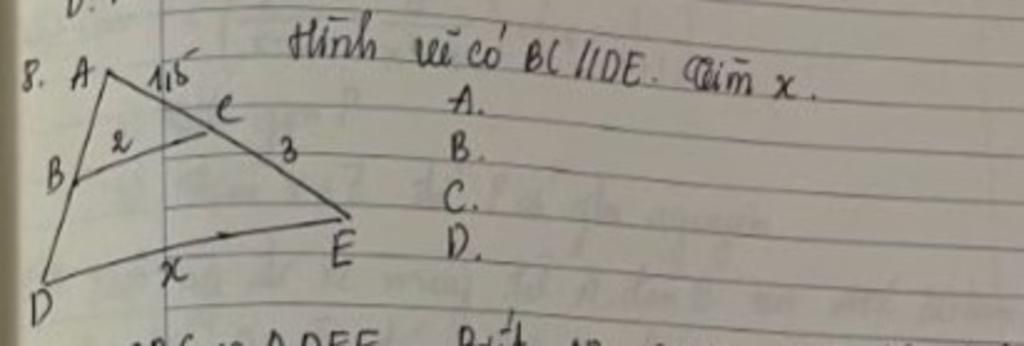 8.
Hình vẽ có BC // DE. Tìm x.
A 1,5 C
B 2 3
D x E
A.
B.
C.
D.